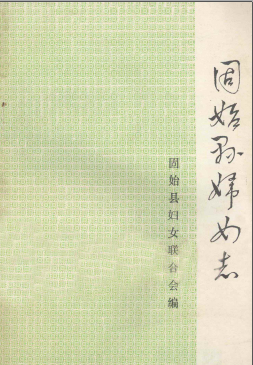 固始县妇女志
固始县妇女联合会编